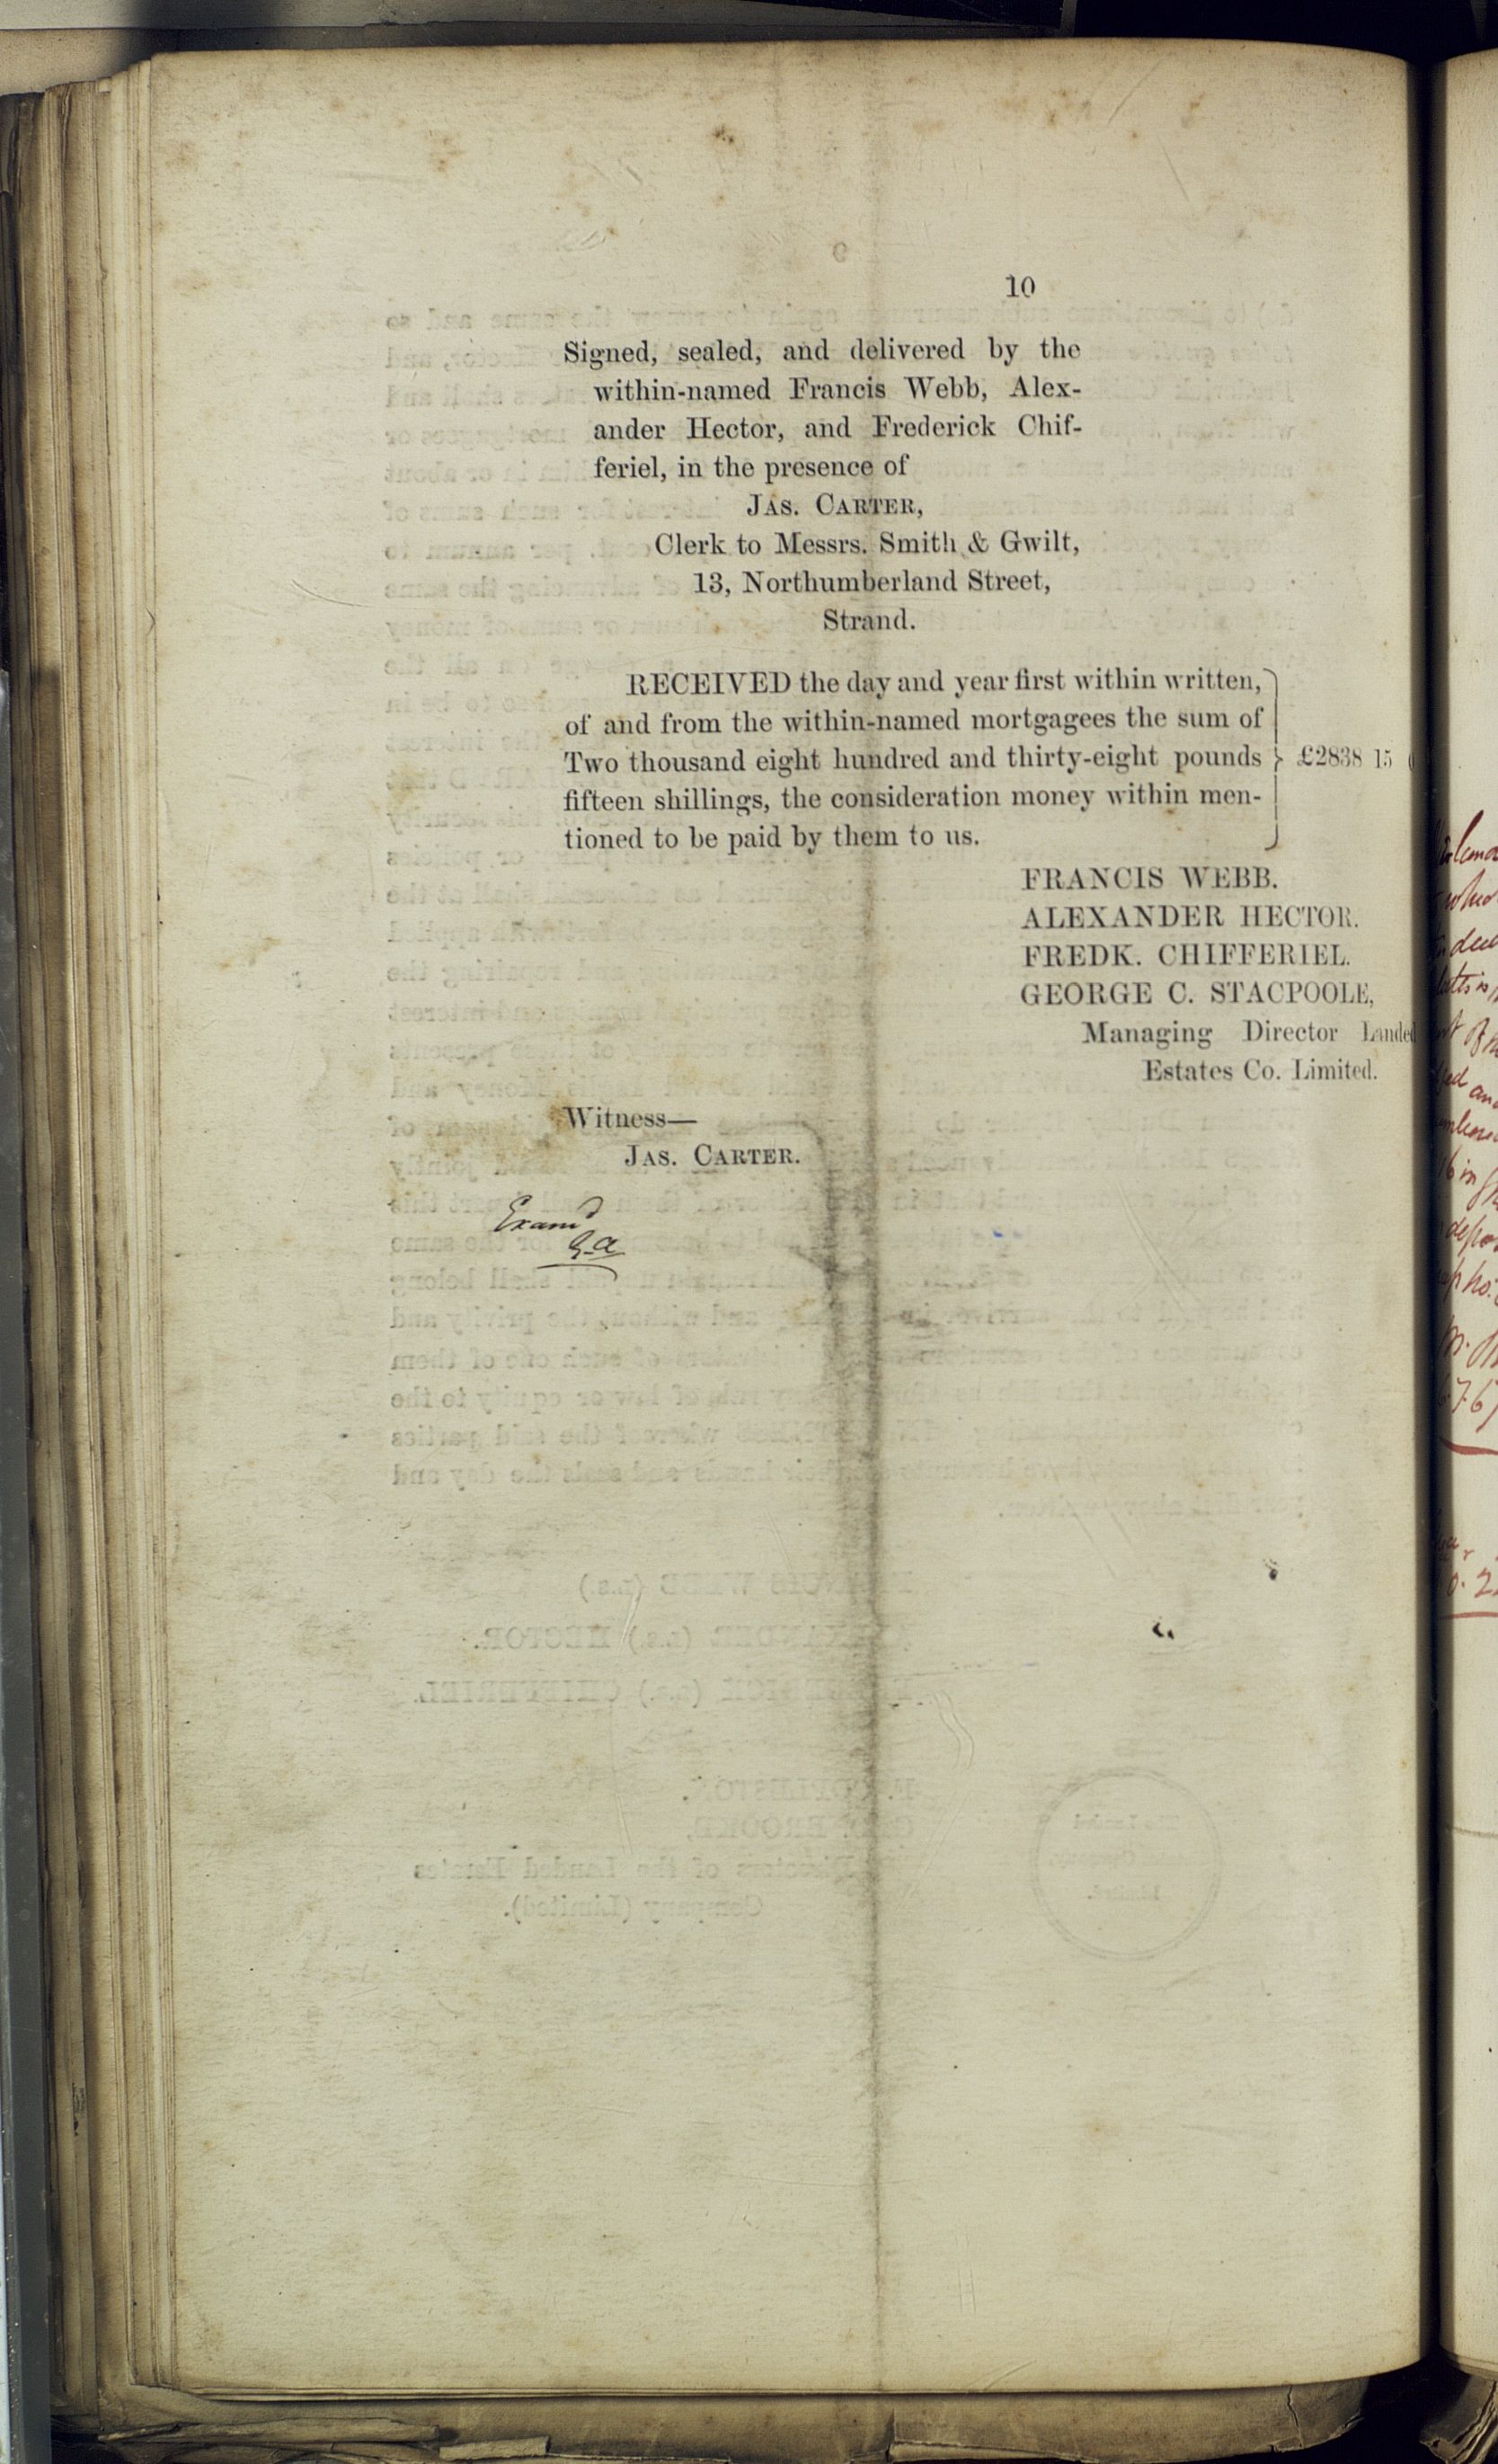 10
Signed, sealed, and delivered by the
within-named Francis Webb, Alex-
ander Hector, and Frederick Chif-
feriel, in the presence of
JAS. CARTER,
Clerk to Messrs. Smith & Gwilt,
13, Northumberland Street,
Strand.
RECEIVED the day and year first within written,
of and from the within-named mortgagees the sum of
Two thousand eight hundred and thirty-eight pounds } £2838 15
fifteen shillings, the consideration money within men-
tioned to be paid by them to us.
FRANCIS WEBB.
ALEXANDER HECTOR.
FREDK. CHIFFERIEL.
GEORGE C. STACPOOLE,
Managing Director Landed
Estates Co. Limited.
Witness—
JAS. CARTER.
Examd